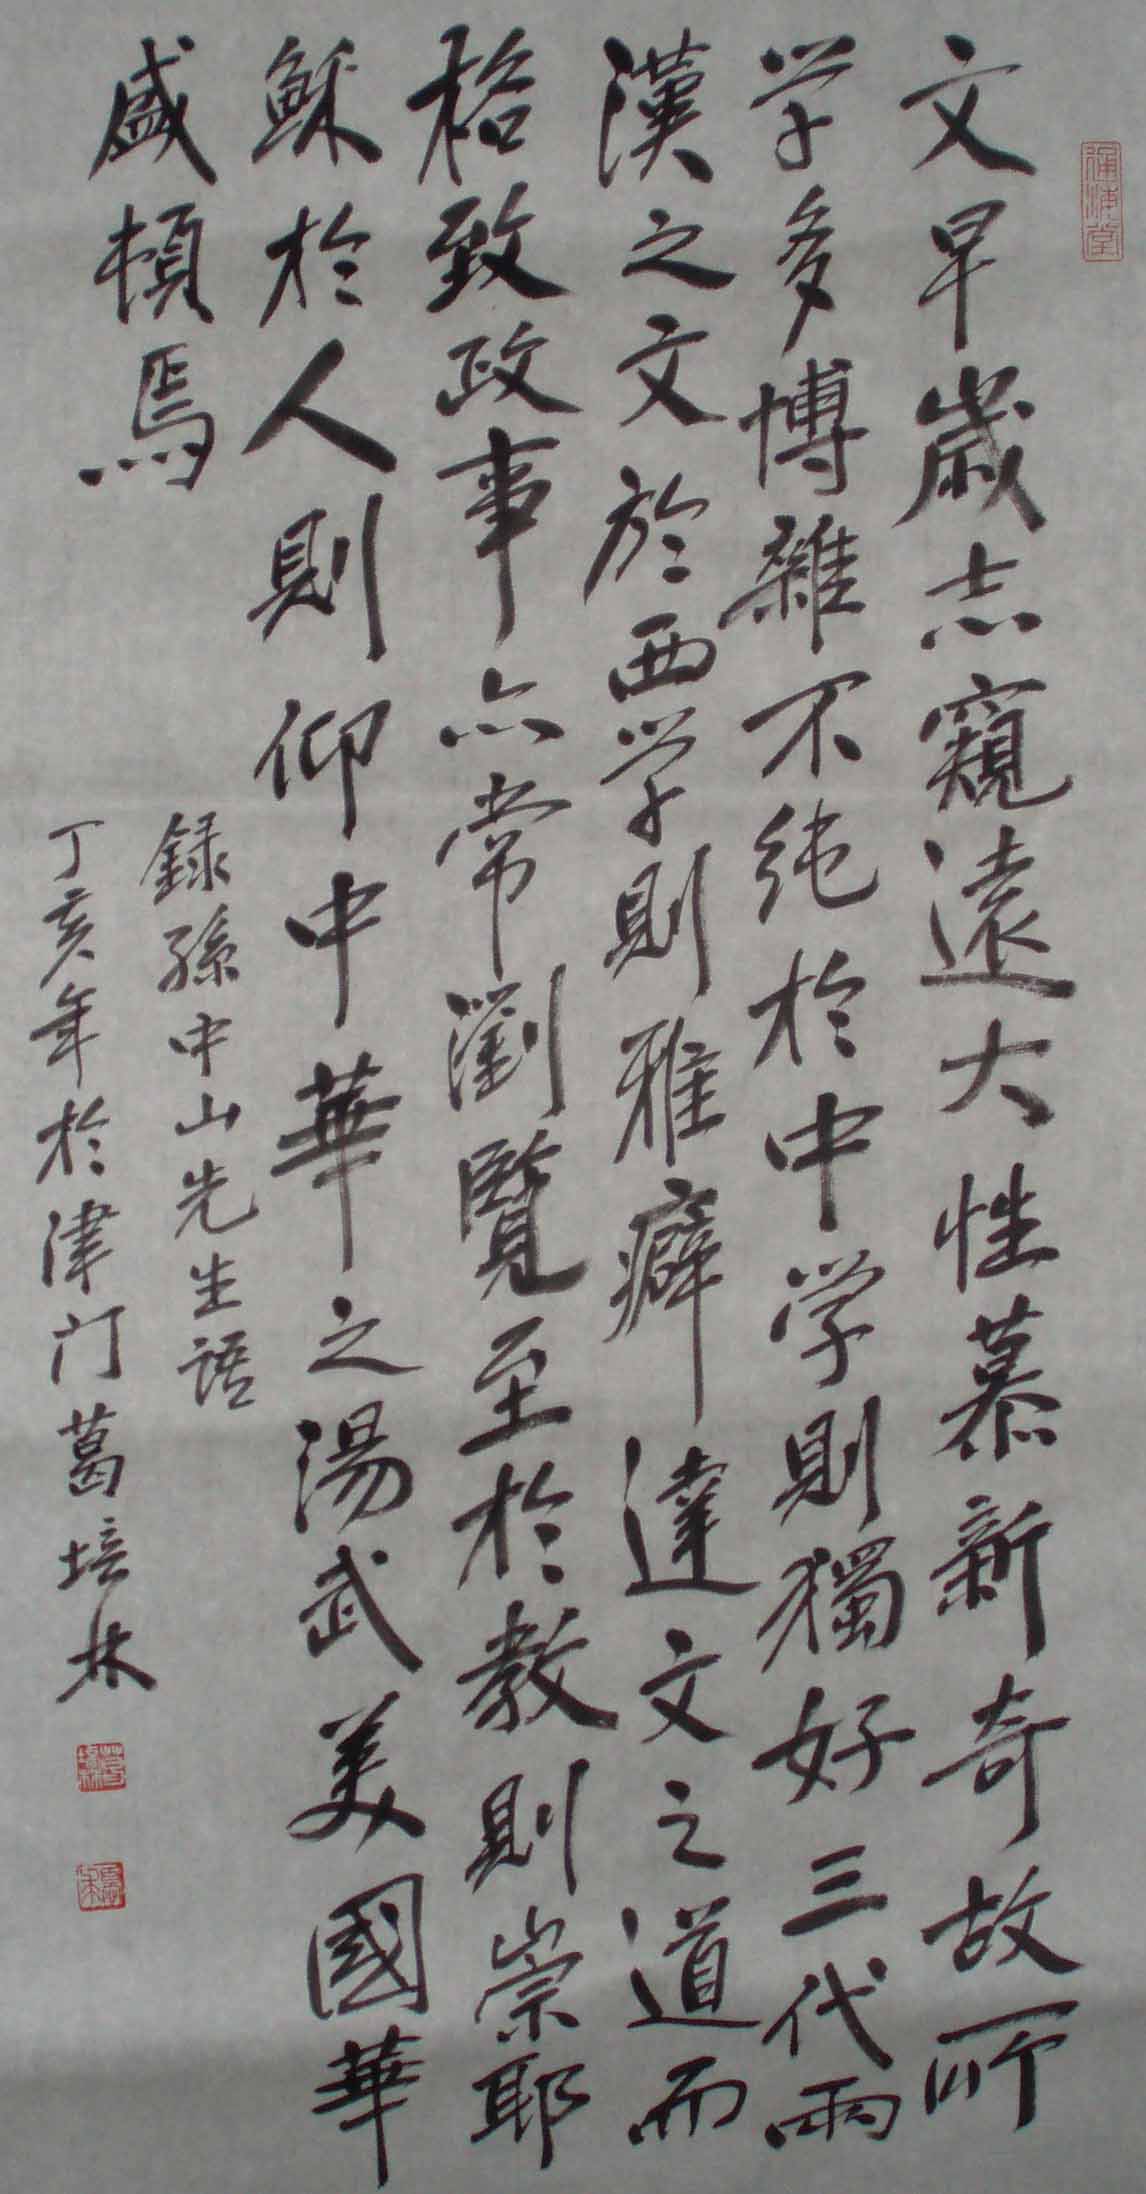 文早歲志窺遠大性慕新奇故所
学多博雜不純於中学則獨好三代兩
漢之文於西学則雅癖達文之道而
格致政事亦常瀏覽至於教則崇耶
穌於人則仰中華之湯武美國華
盛頓焉
録孫中山先生語
丁亥年於津门葛培林